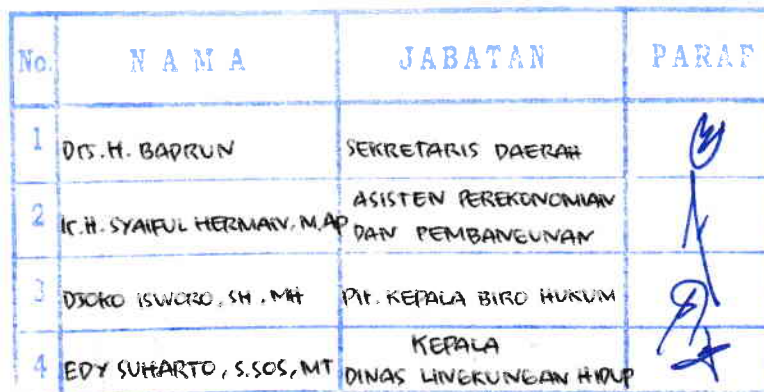 No. N A M A JABATAN PARAF
1 Drs. H. BADRUN SEKRETARIS DAERAH
2 Ir. H. SYAIFUL HERMAN, M.AP ASISTEN PEREKONOMIAN
DAN PEMBANGUNAN
3 DJOKO ISWORO, SH, MH Plt. KEPALA BIRO HUKUM
4 EDY SUHARTO, S.SOS, MT KEPALA
DINAS LINGKUNGAN HIDUP